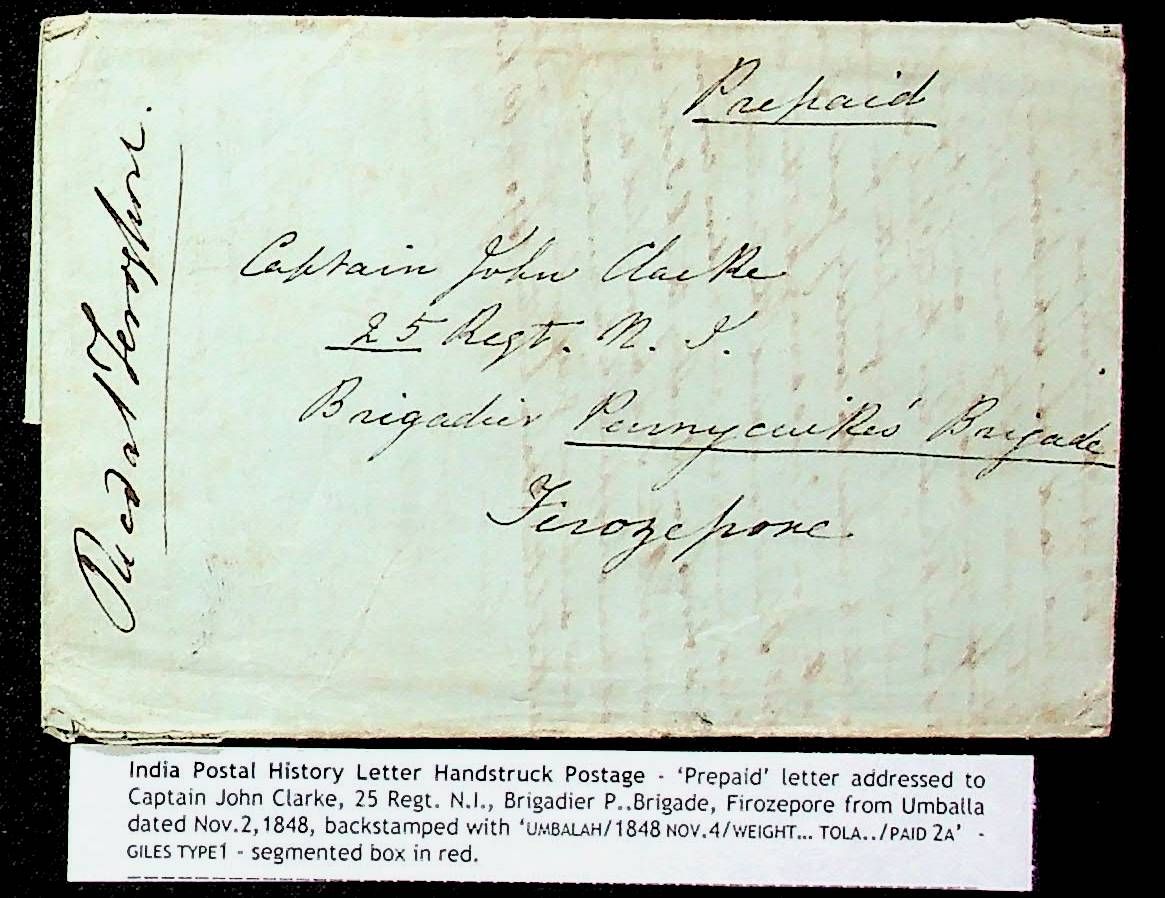 Prepaid
Captain John Clarke
25 Regt. N. I.
Brigadier Pennycuik's Brigade
Firozepore
Recd at Ferozepore.
India Postal History Letter Handstruck Postage - ‘Prepaid’ letter addressed to
Captain John Clarke, 25 Regt. N.I., Brigadier P..Brigade, Firozepore from Umballa
dated Nov.2,1848, backstamped with ‘UMBALAH/1848 NOV.4/WEIGHT... TOLA../PAID 2A’ -
GILES TYPE1 - segmented box in red.